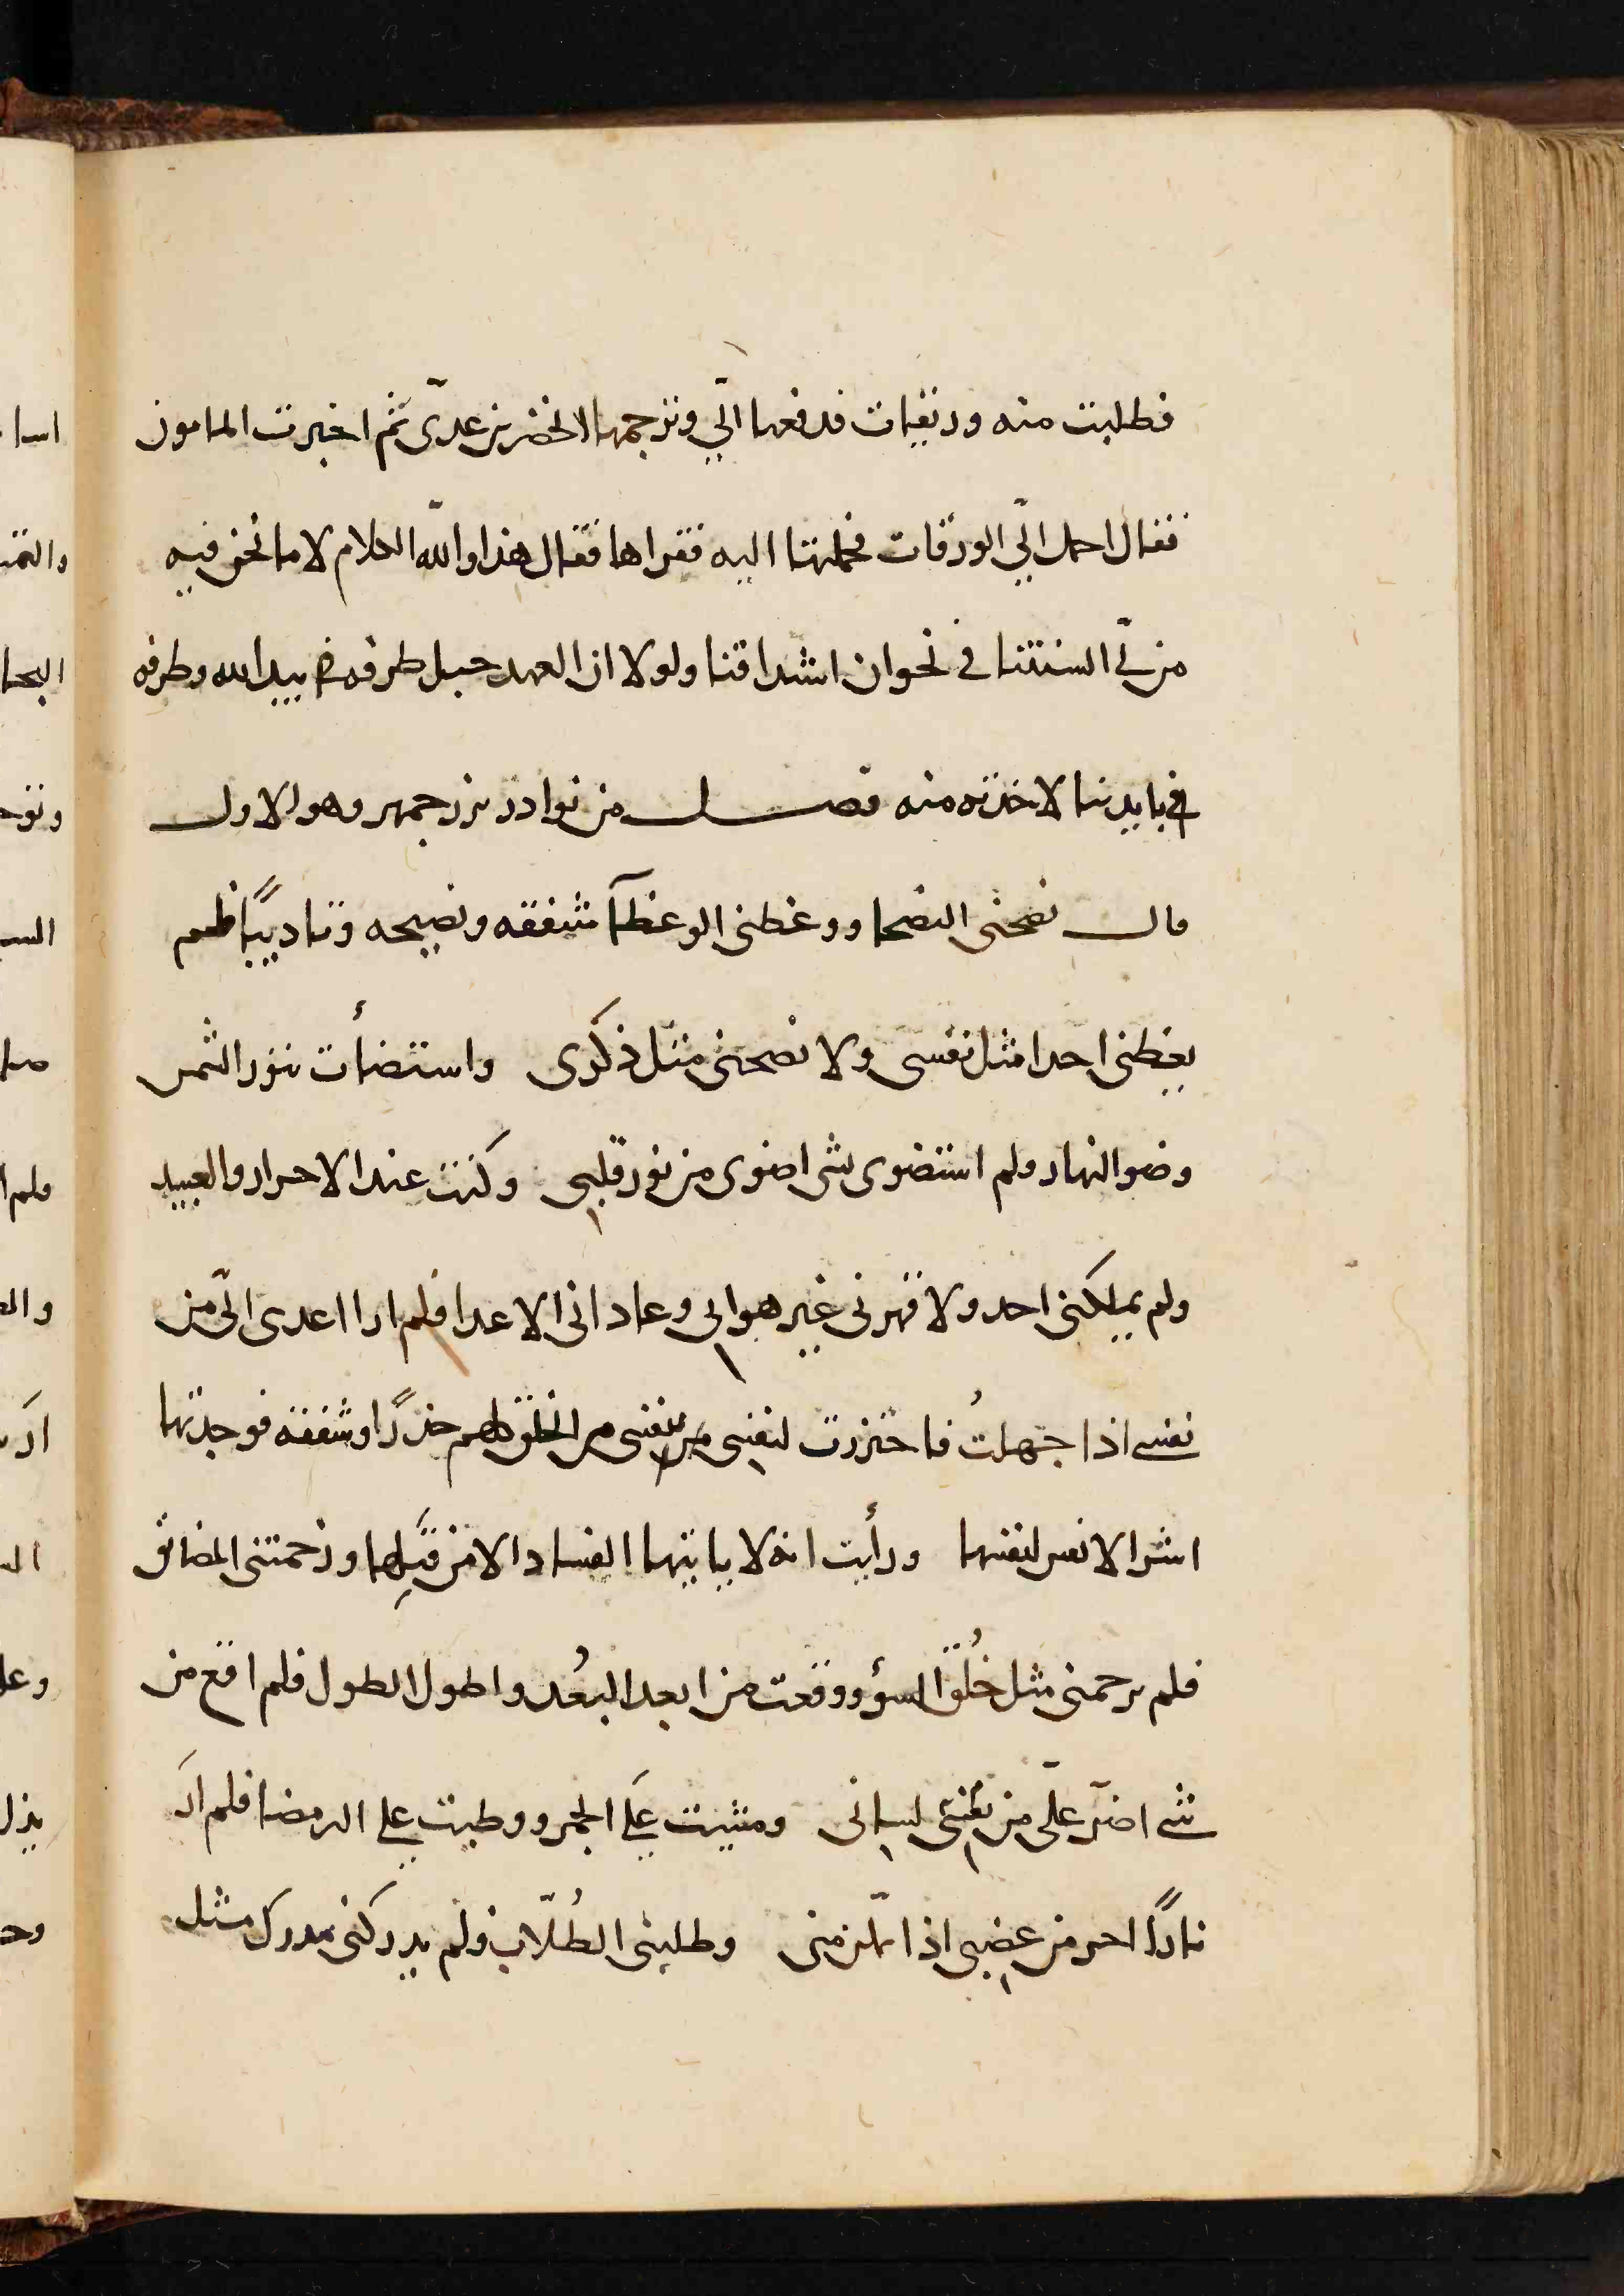 فطلبت منه وريقات فدفعها اليّ وترجمها لالخضر بن عدىّ ثم اخبرت المامون
فقال احمل اليّ الورقات فحملتها اليه فقراها فقال هذا والله الكلام لا ما نحن فيه
من ليّ السنتنا في نحوان اشداقنا ولولا ان العهد حبل طرفه بيد الله وطرفه
في بايدينا لاخذته منه فصل من نوادر بزرجمهر وهو الاول
قال نصحنى النصحا ووعظنى الوعظآ شفقه ونصيحه وتاديبًا فلم
يعظنى احدا مثل نفسى ولا نصحنى مثل فكرى واستضأت بنور الشمس
وضو النهار ولم استضوى بشى اضوى من نور قلبى وكنت عند الاحرار والعبيد
ولم يملكنى احد ولا قهرنى غير هوايى وعادانى الاعدا فلم ارا اعدى اليّ من
نفسى اذا جهلتُ فاحترزت لنفسى من نفسى من الخلق كلهم حذرًا وشفقه فوجدتها
اشر الانفس لنفسها ورأيت انه لا ياتيها الفساد الا من قِبَلِها وزحمتنى المضائق
فلم يزحمنى مثل خُلُق السؤ ووقعت من ابعد البُعد واطول الطول فلم اقع من
شى اضرّ علىّ من لسانى ومشيت على الجمر ووطيت على الرمضا فلم ارَ
نارًا احر من غضبى اذا تمكّن منى وطلبنى الطُلّاب فلم يدركنى مدرك مثل
اسا
والتمـ
البحا
ولم ا
وعلـ
بذل
وحـ